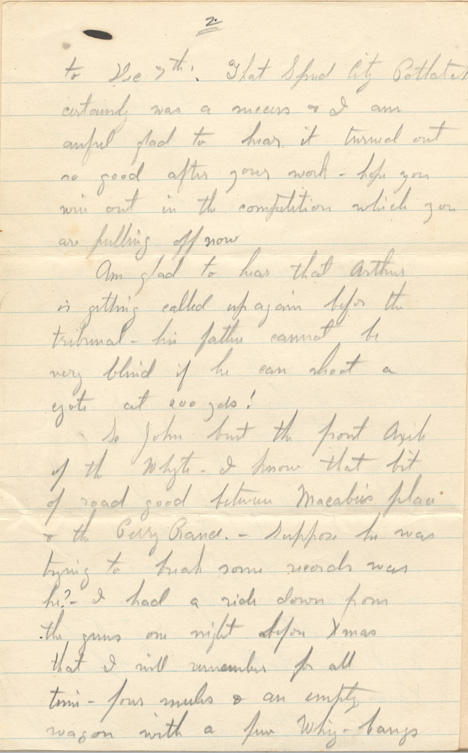 2.
to Dec 7th. That Spud City Potlatch
certainly was a success & I am
awful glad to hear it turned out
so good after your work - hope you
win out in the competition which you
are pulling off now
Am glad to hear that Arthur
is getting called up again befor the
tribunal - his father cannot be
very blind if he can shoot a
cyote at 200 yds!
So John bust the front Axile
of the Whyte - I know that bit
of road good between Macabies place
& the Perry Rance. - Suppose he was
trying to break some records was
he? - I had a ride down from
the guns one night befor Xmas
that I will remember for all
time - four mules & an empty
wagon with a few Whiz-bangs